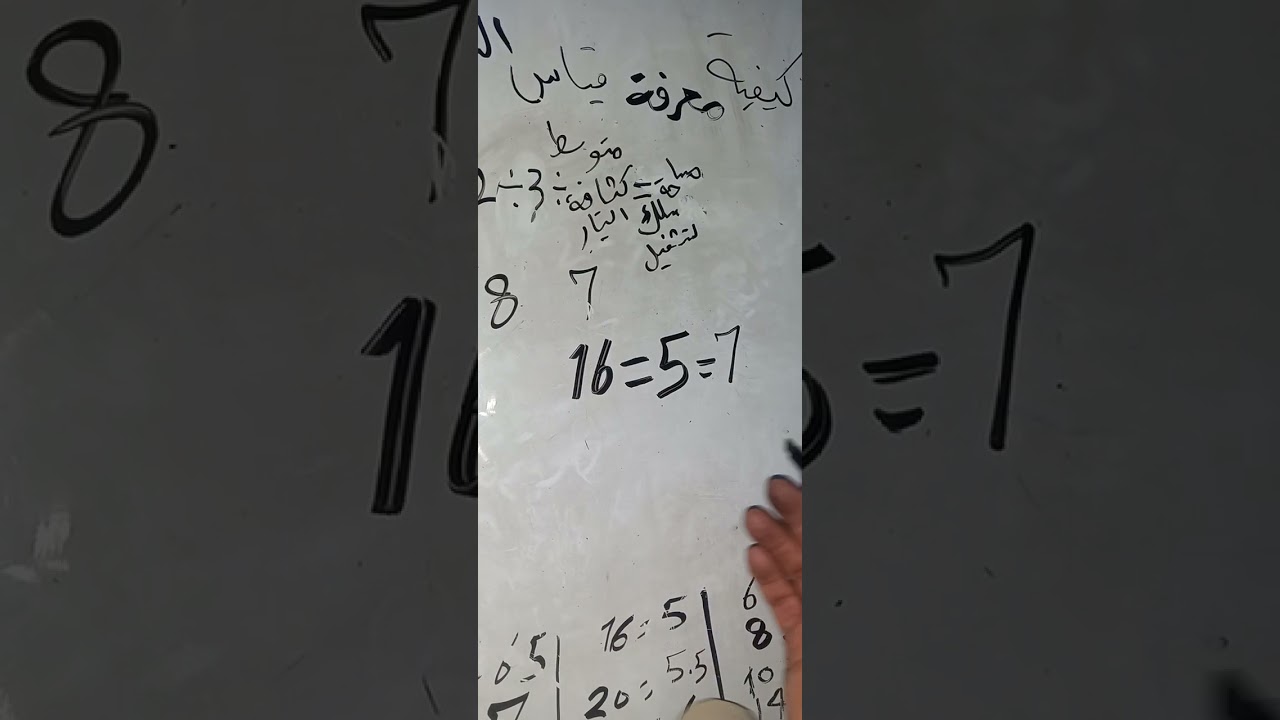 كيفية معرفة قياس ال
متوسط
مساحة = كثافة ÷ 3 ÷ 2
سلك التيار
لتشغيل
8 7
16=5=7
6
16=5 8
0.5 20=5.5 10
7 14